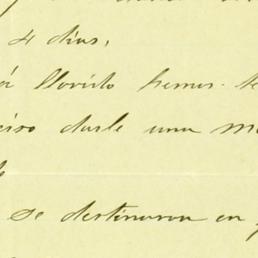 4 dias,
á llovido hemos
darle una
se destinaron en